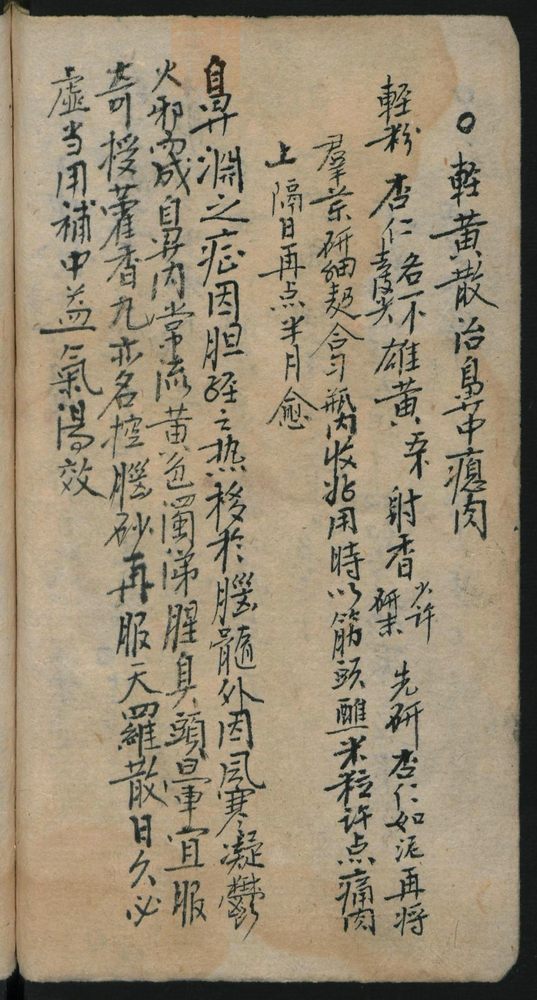 ○軽黄散治鼻中瘜肉
軽粉 杏仁各不 去皮尖 雄黄 五不 射香 少许 研末 先研杏仁如泥再将
羣药研細匀合瓶内收貯用時以筋頭蘸米粒许点痛肉
上 隔日再点半月愈
鼻渊之症因胆經之热移於腦髓外因風寒凝鬱
火邪而成鼻内常流黄色濁涕腥臭頭暈宜服
奇授藿香丸亦名控腦砂再服天羅散日久必
虛当用補中益氣湯效